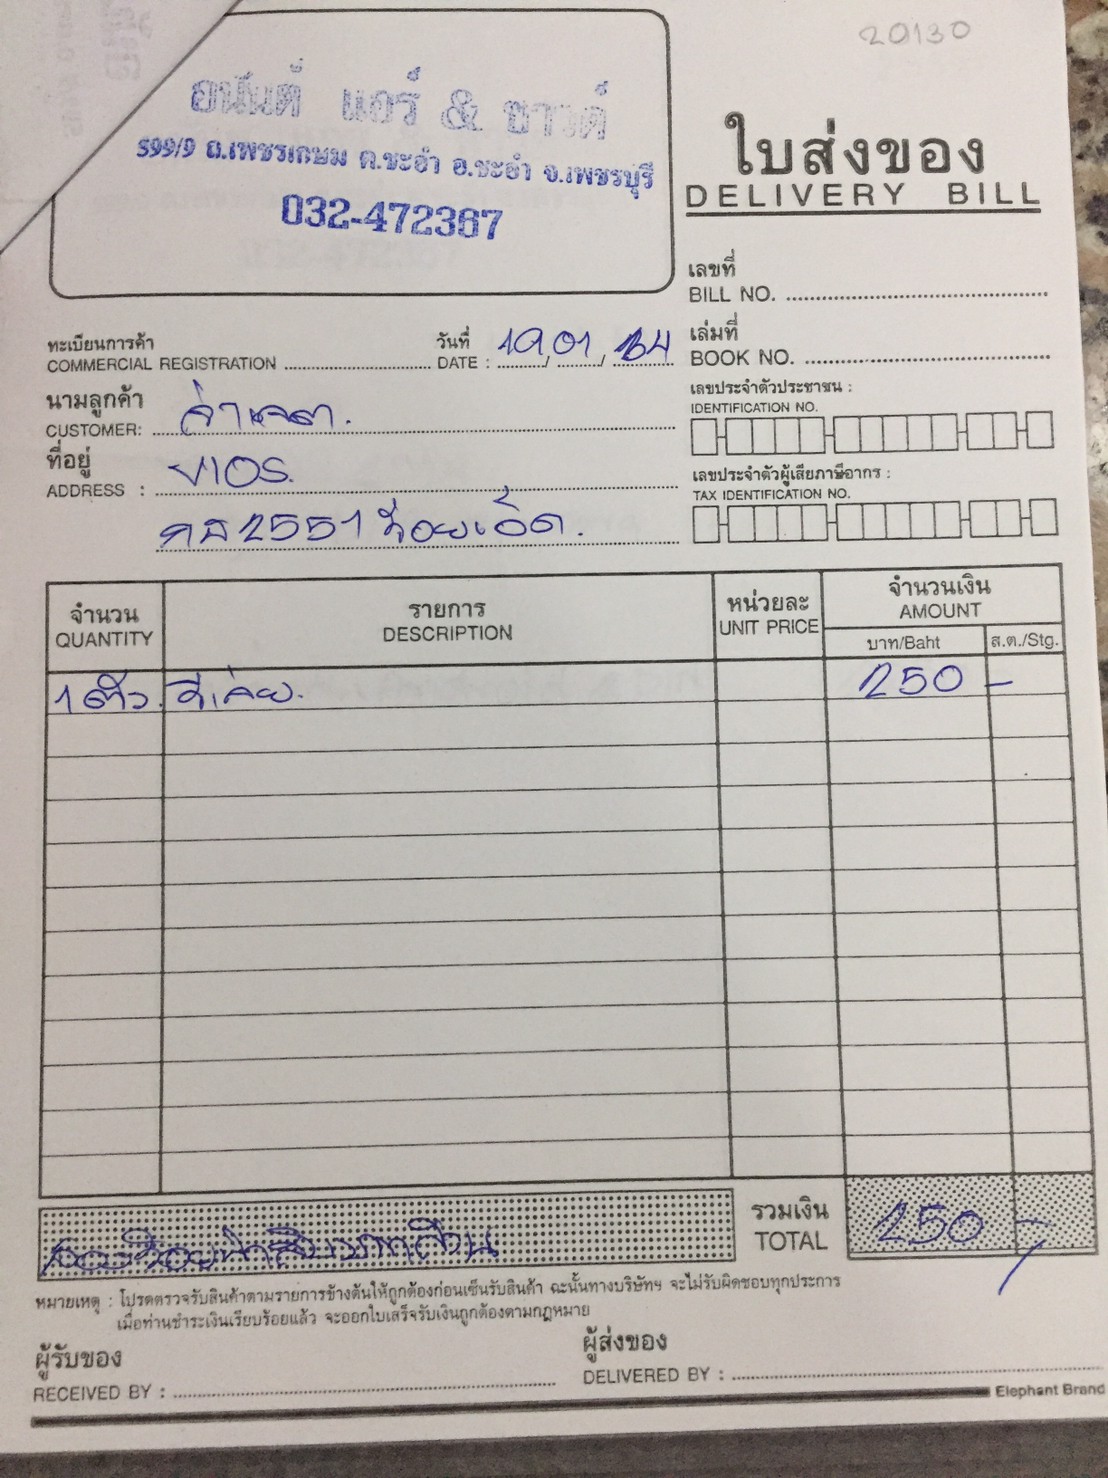 20130
อนันต์ แอร์ & ซาวด์
599/9 ถ.เพชรเกษม ต.ชะอำ อ.ชะอำ จ.เพชรบุรี
032-472367
ใบส่งของ
DELIVERY BILL
เลขที่
BILL NO.
ทะเบียนการค้า
COMMERCIAL REGISTRATION
วันที่
DATE : 19/01/64
เล่มที่
BOOK NO.
นามลูกค้า
CUSTOMER:
เลขประจำตัวประชาชน :
IDENTIFICATION NO.
ที่อยู่
ADDRESS : VIOS.
2551 ร้อยเอ็ด.
เลขประจำตัวผู้เสียภาษีอากร :
TAX IDENTIFICATION NO.
จำนวน
QUANTITY
รายการ
DESCRIPTION
หน่วยละ
UNIT PRICE
จำนวนเงิน
AMOUNT
บาท/Baht
ส.ต./Stg.
1 ตัว. รีเลย์. 250 -
สองร้อยห้าสิบบาทถ้วน
รวมเงิน
TOTAL
250 -
หมายเหตุ : โปรดตรวจรับสินค้าตามรายการข้างต้นให้ถูกต้องก่อนเซ็นรับสินค้า ฉะนั้นทางบริษัทฯ จะไม่รับผิดชอบทุกประการ
เมื่อท่านชำระเงินเรียบร้อยแล้ว จะออกใบเสร็จรับเงินถูกต้องตามกฎหมาย
ผู้รับของ
RECEIVED BY :
ผู้ส่งของ
DELIVERED BY :
Elephant Brand